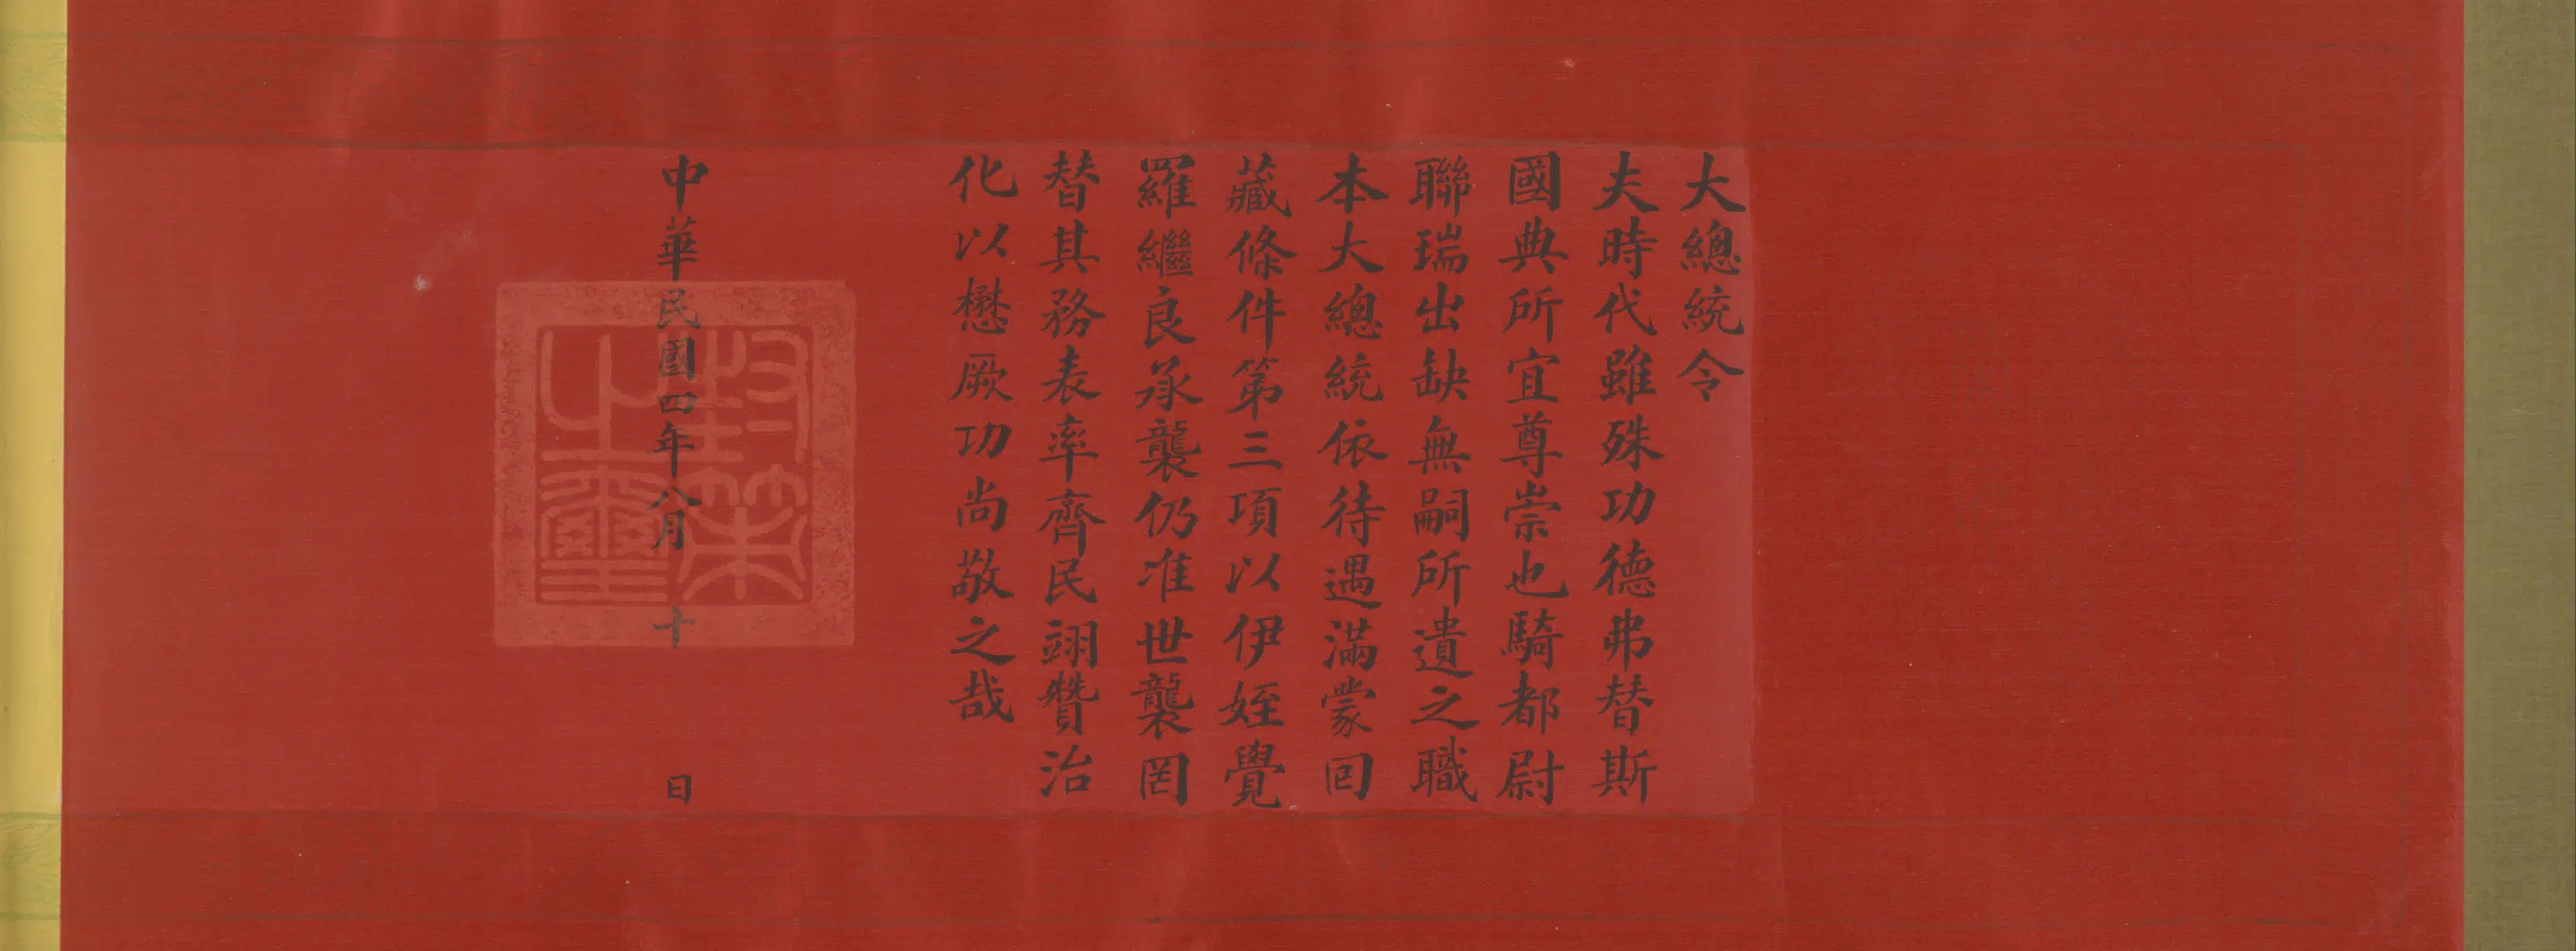 大總統令
夫時代雖殊功德弗替斯
國典所宜尊崇也騎都尉
聯瑞出缺無嗣所遺之職
本大總統依待遇滿蒙回
藏條件第三項以伊姪覺
羅繼良承襲仍准世襲罔
替其務表率齊民翊贊治
化以懋厥功尚敬之哉
中華民國四年八月十日
封策之璽